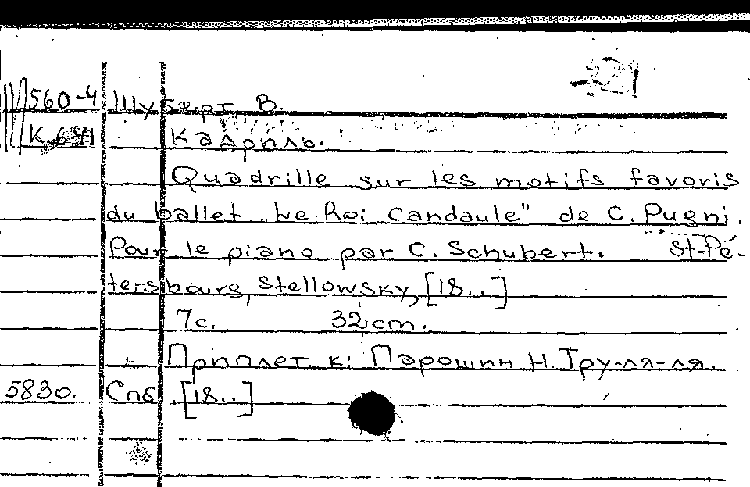 560-4 Шуберт, В.
К
Кадриль.
Quadrille sur les motifs favoris
du ballet „Le Roi Candaule" de C. Pugni.
Pour le piano par C. Schubert. St-Pé-
tersbourg, Stellowsky, [18..]
7с. 32 cm.
Приплет к: Парошин Н. Тру-ля-ля.
5830. Спб. [18..]